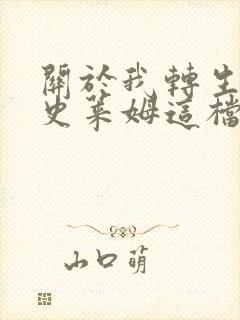 關於我轉生
史萊姆這檔
山口萌